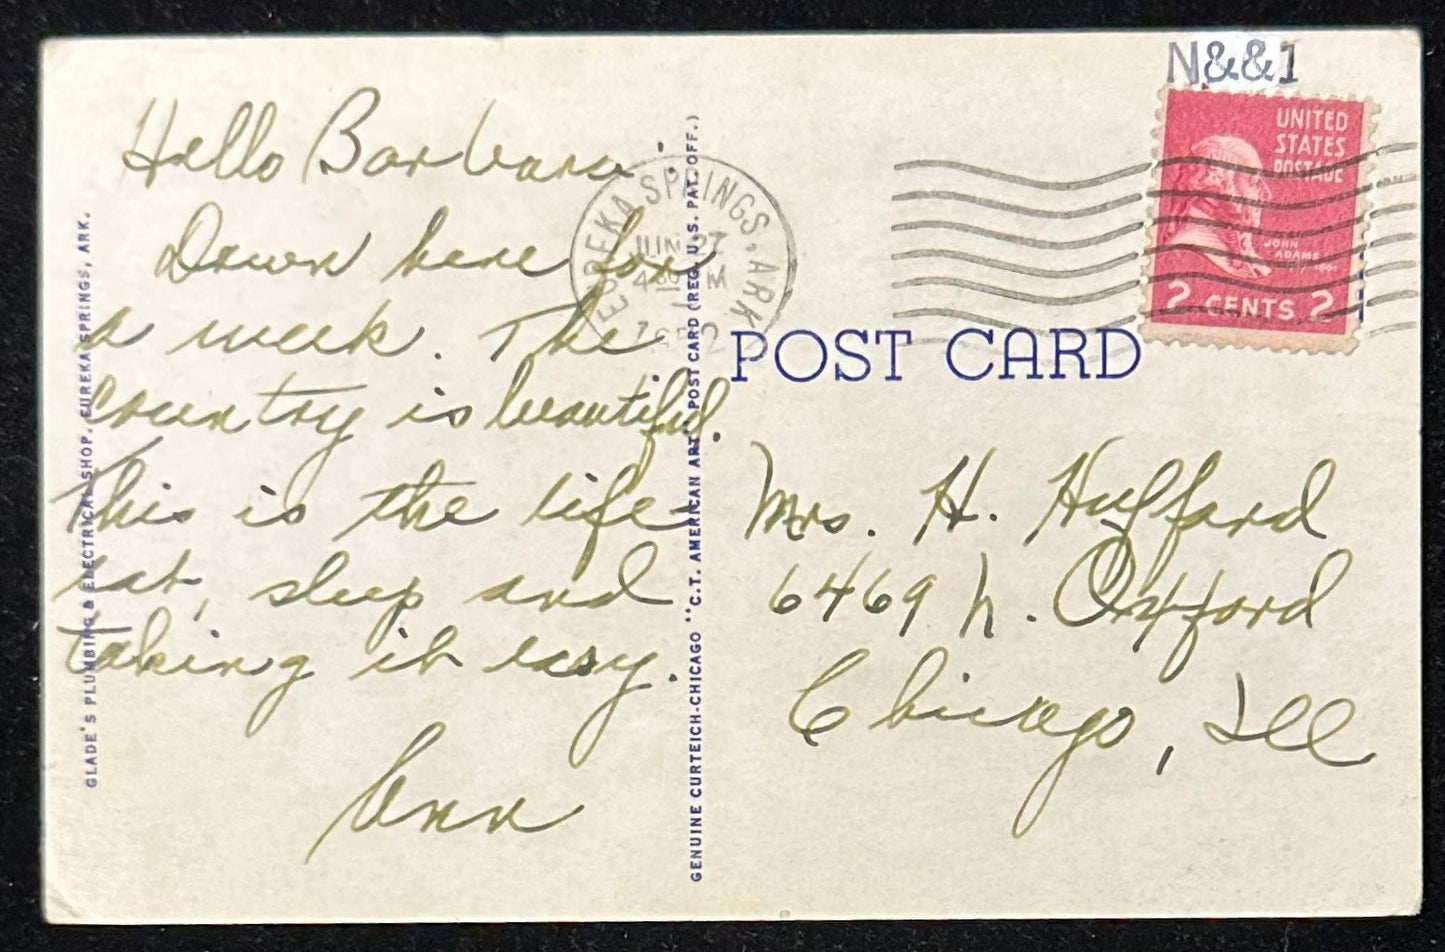 Hello Barbara:
Down here for
a week. The
country is beautiful.
This is the life
eat, sleep and
taking it easy.
Ann
GLADE'S PLUMBING & ELECTRICAL SHOP, EUREKA SPRINGS, ARK.
GENUINE CURTEICH-CHICAGO "C.T. AMERICAN ART" POST CARD (REG. U.S. PAT. OFF.)
EUREKA SPRINGS, ARK.
JUN 27
4 PM
N&&1
UNITED
STATES
POSTAGE
JOHN
ADAMS
2 CENTS 2
POST CARD
Mrs. H. Hufford
6469 N. Oxford
Chicago, Ill